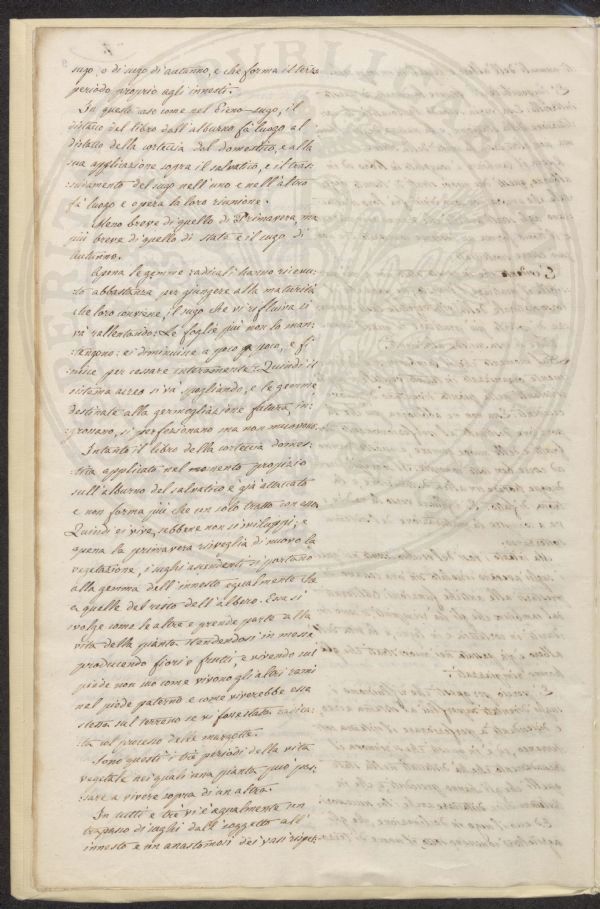 sugo, o di sugo di autunno, e che forma il terzo
periodo proprio agli innesti.
In questo caso come nel Pieno-sugo, il
distacco del libro dall'alburno fà luogo al
distacco della corteccia del domestico, e alla
sua applicazione sopra il salvatico, e il tras:
:sudamento del sugo nell'uno e nell'altro
fà luogo e opera la loro riunione.
Meno breve di quello di Primavera, ma
più breve di quello di state è il sugo di
autunno.
Apena le gemme radicali hanno ricevu:
:to abbastanza per giungere alla maturità
che loro conviene, il sugo che vi rifluiva si
và rallentando: Le foglie più non lo man:
:tengono: ei diminuisce a poco a poco, e fi:
:nisce per cessare interamente: Quindi il
sistema aereo si và spogliando, e le gemme
destinate alla germogliazione futura, in:
:grossano, si perfezionano ma non muovono.
Intanto il libro della corteccia domes:
:tica applicato nel momento propizio
sull'alburno del salvatico è già attaccato
e non forma più che un solo tratto con esso.
Quindi ei vive, sebbene non si sviluppi; e
apena la primavera risveglia di nuovo la
vegetazione, i sughi ascendenti si portano
alla gemma dell'innesto egualmente che
a quelle del resto dell'albero. Essa si
svolge come le altre e prende parte alla
vita della pianta stendendosi in messe
producendo fiori e frutti, e vivendo sul
piede non suo come vivono gli altri rami
nel piede paterno e come viverebbe essa
stessa sul terreno se vi fosse stata radica:
:ta col processo delle margotte.
Sono questi i trè periodi della vita
vegetale nei quali una pianta può pas:
:sare a vivere sopra di un'altra.
In tutti e trè vi è egualmente un
trapasso di sughi dall'soggetto all'
innesto e un anastomosi dei vasi rispet: